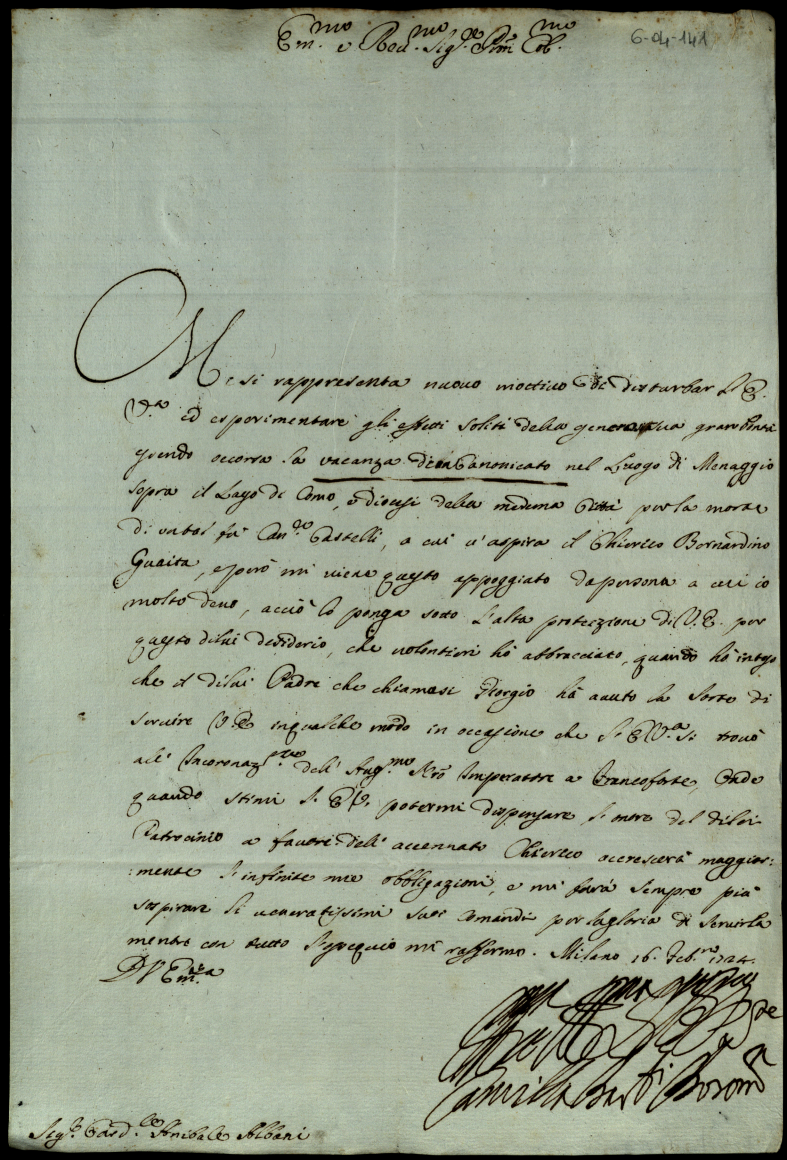 Em.mo e Rev.mo Sig.re P'rone Col.mo
6-04-141
Mi si rappresenta nuovo mottivo di disturbar L'E.
V.a ed esperimentare gli effetti soliti della generosa sua gran bontà
essendo occorsa la vacanza di un Canonicato nel Luogo di Menaggio
sopra il Lago di Como, e diocesi della medema Città per la morte
di un tal fù Can.co Castelli, a cui v'aspira il Chierico Bernardino
Guaita, e però mi viene questo appoggiato da persona a cui io
molto devo, acciò lo ponga sotto l'alta protezzione di V.E. per
questo di lui desiderio, che volontieri hò abbracciato, quando hò inteso
che il di lui Padre che chiamasi Giorgio hà avuto la sorte di
servire V.E. in qualche modo in occasione che L'E.V.a si trovò
all' Incoronaz.ne dell' Aug.mo N'ro Imperatore a Francoforte, Onde
quando stimi L'E.V. potermi dispensare
Patrocinio a favore dell' accennato Chierico accrescerà maggior:
:mente l'infinite mie obbligazioni, e mi farà sempre più
sospirare li veneratissimi suoi Comandi per la gloria di servirla
mentre con tutto l'ossequio mi raffermo. Milano 16. Feb.ro 1724.
D V Em.za
Camilla Barb.i Borom.a
Sig.r Card.le Anibale Albani